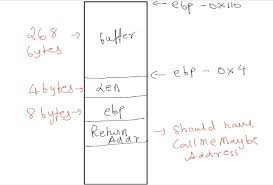 ← ebp - 0x110
268 →
bytes
buffer
← ebp - 0x4
4 bytes → len
8 bytes → ebp
Return
Addr
→ Should have
CallMeMaybe
Address